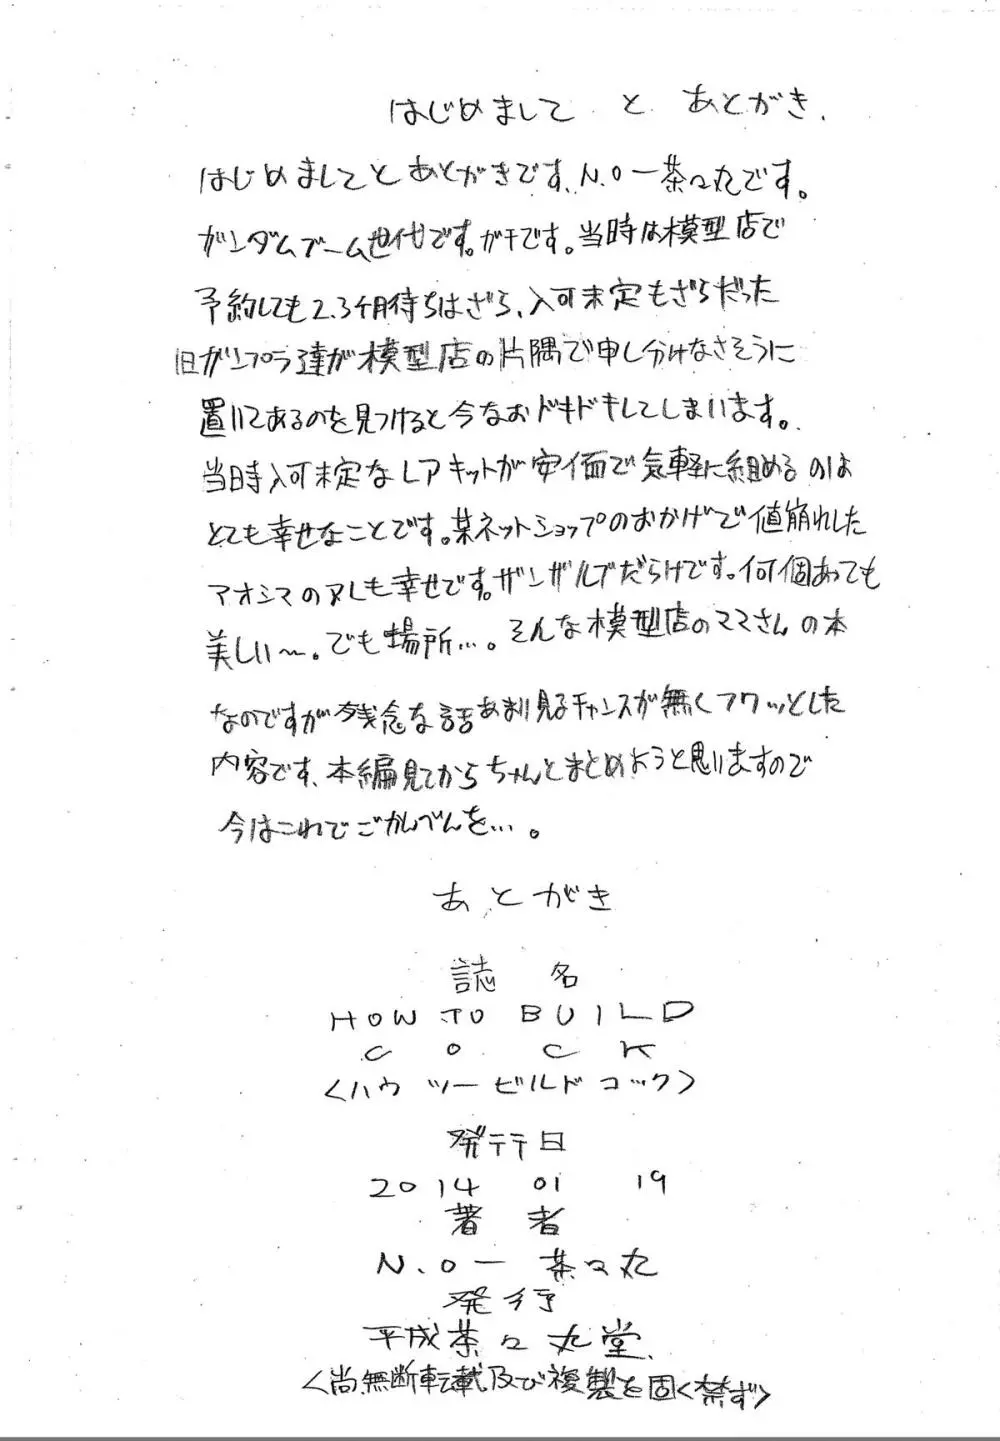 はじめまして と あとがき.
はじめましてとあとがきです、N.O一茶々丸です。
ガンダムブーム世代です。ガチです。当時は模型店で
予約しても2.3ヶ月待ちはざら、入可未定もざらだった
旧ガンプラ達が模型店の片隅で申し分けなさそうに
置いてあるのを見つけると今なおドキドキしてしまいます。
当時入可未定なレアキットが安価で気軽に組めるのは
とても幸せなことです。某ネットショップのおかげで値崩れした
アオシマのアレも幸せです。ザンザルブだらけです。何個あっても
美しい〜。でも場所…。そんな模型店のママさんの本
なのですが残念な話あまり見るチャンスが無くフワッとした
内容です、本編見てからちゃんとまとめようと思いますので
今はこれでごかんべんを…。
あとがき
誌 名
HOW TO BUILD
C O C K
<ハウ ツー ビルド コック>
発行日
2014 01 19
著 者
N.O一 茶々丸
発行
平成茶々丸堂.
<尚、無断転載及び複製を固く禁ず>